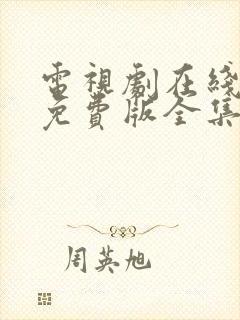 電視劇在綫
免費版全集
周英旭